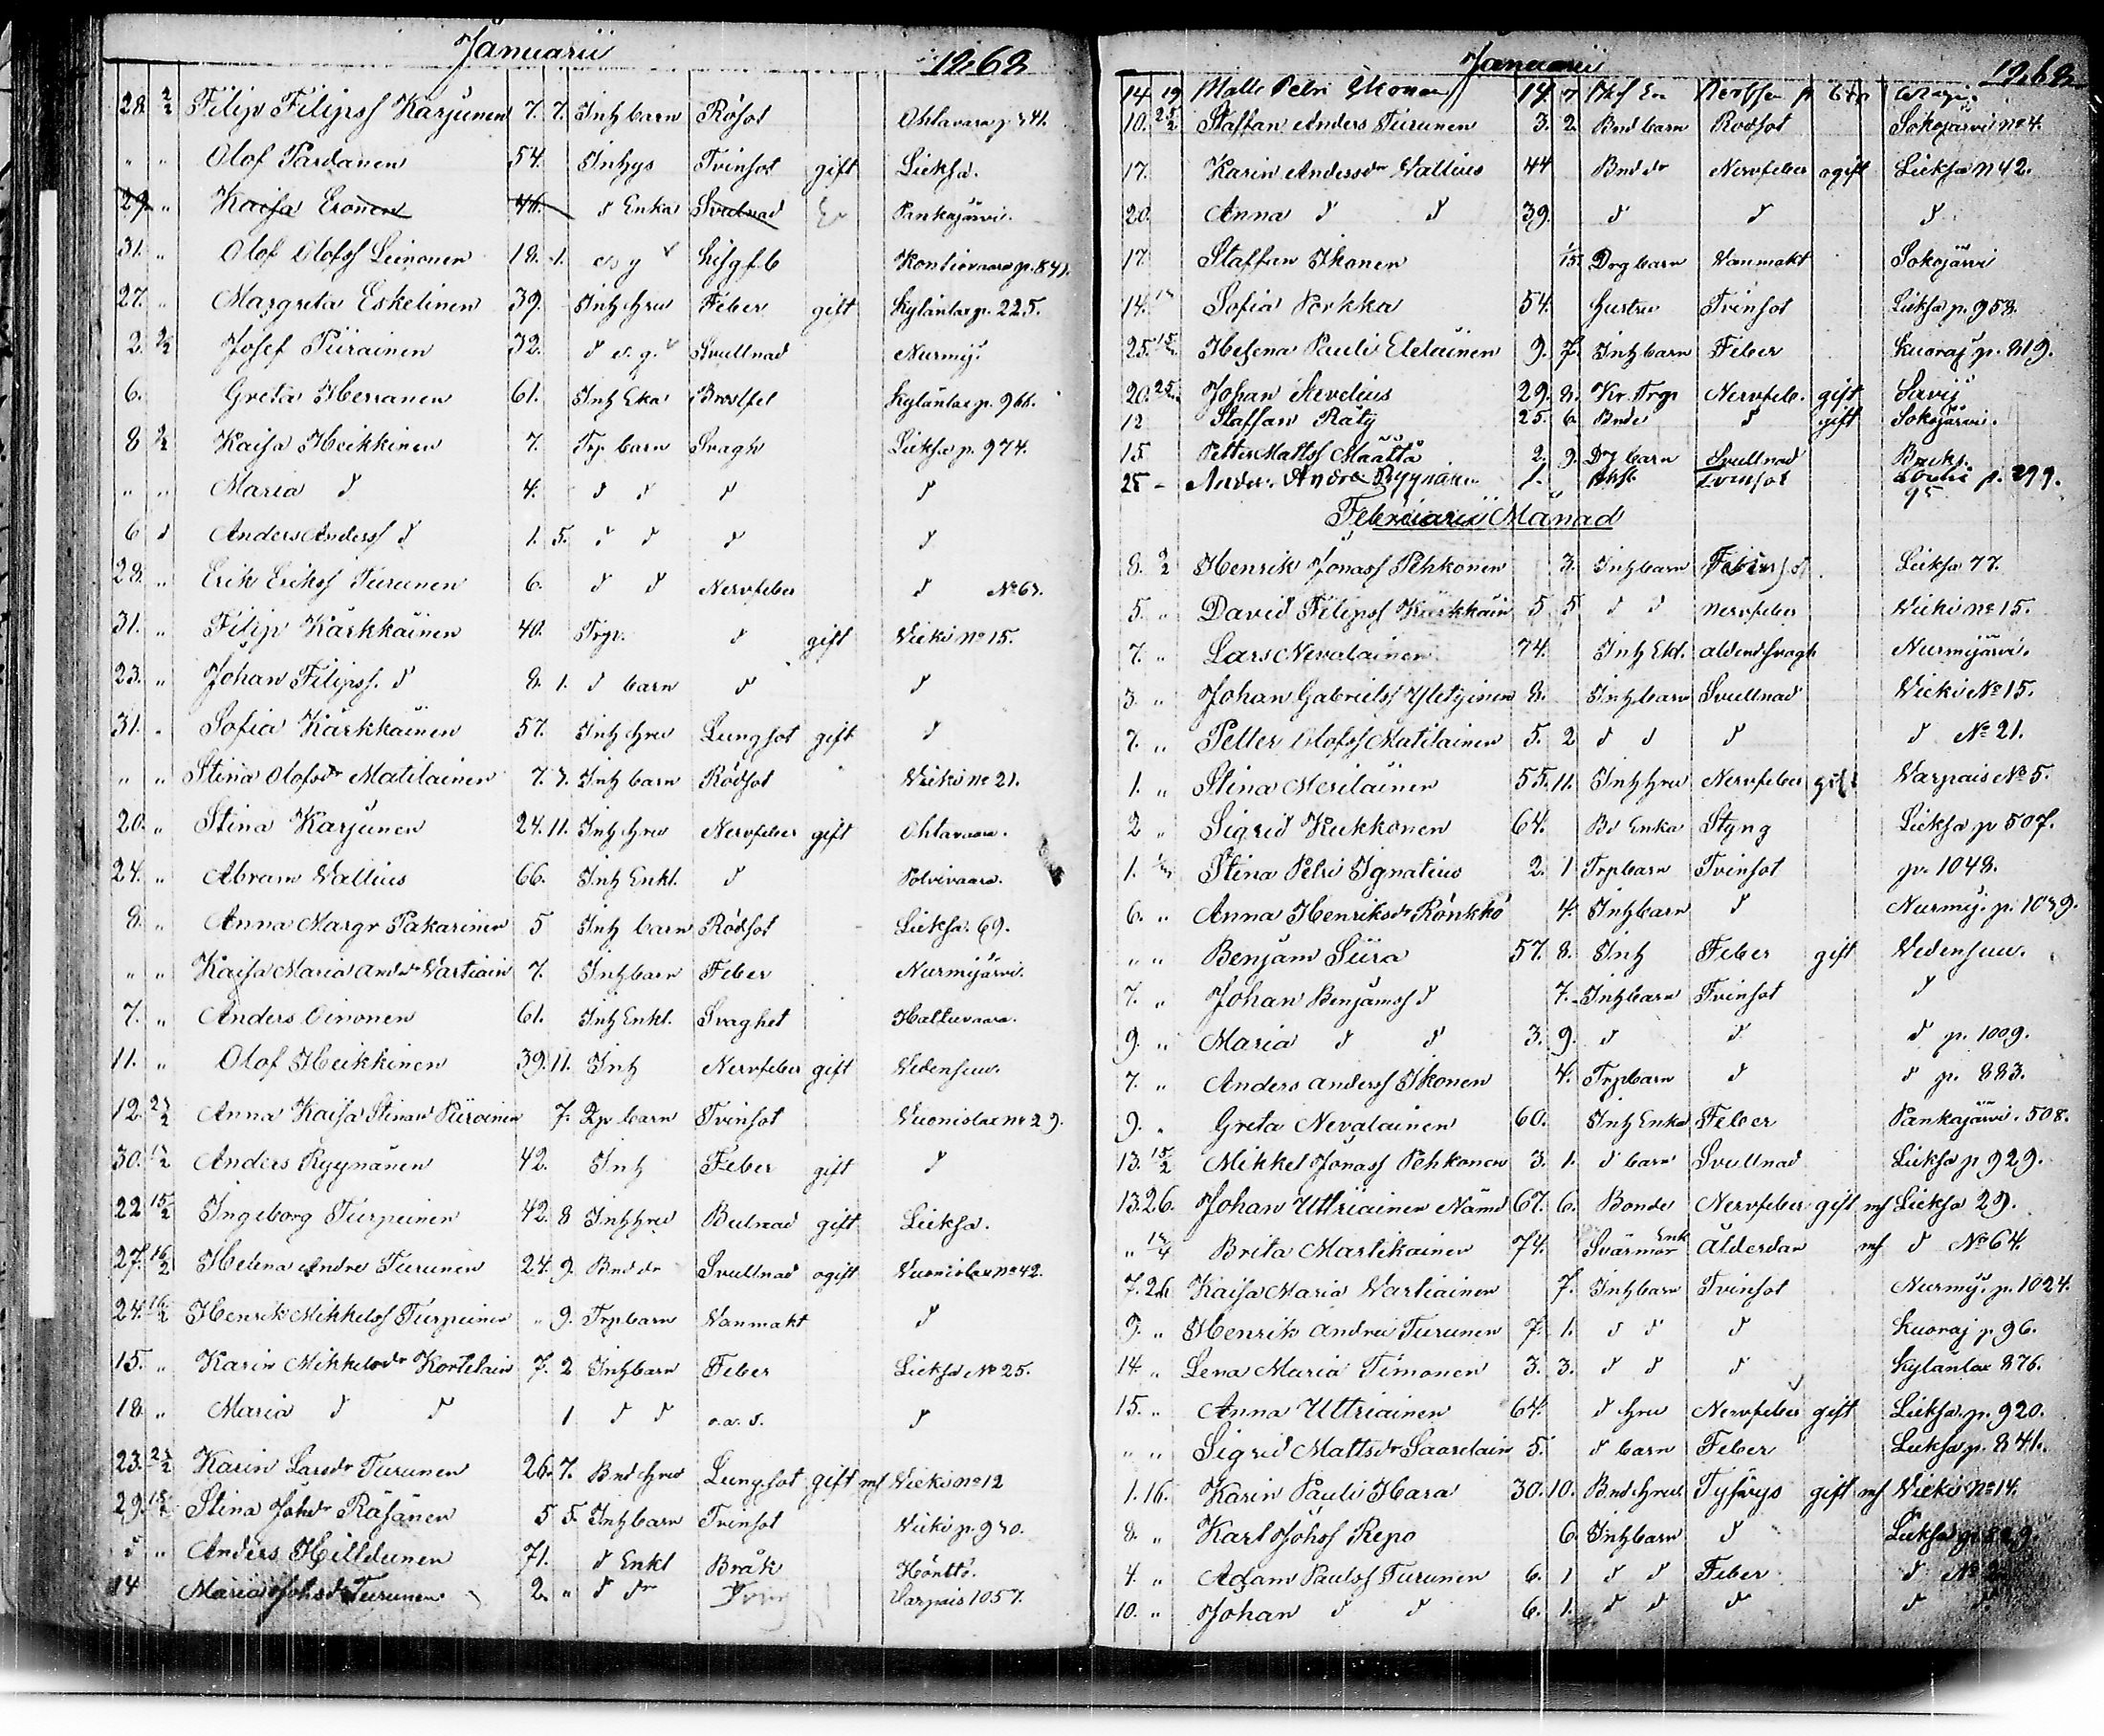 Januarii 1868
28. 2/2 Filip Filipss Karjunen 7. 7. Inh barn Rösot Ohtavaara p 741.
" " Olof Pardanen 54. Inhys Tvinsot gift Lieksa.
29 " Kaisa Eronen 46. d Enka Svullnad Pankajärvi.
31. " Olof Olofss Leinonen 18. 1. Kontiovaara p. 841.
27. " Margreta Eskelinen 39. Inh hru Feber gift Kylänlax p. 225.
2. 2/2 Josef Piirainen 32. Svullnad Nurmij.
6. Greta Herranen 61. Inh Eka Bröstfel Kylänlax p. 966.
8 9/2 Kaisa Heikkinen 7. Trp barn Svagh Lieksa p. 974.
" " Maria d 4. d d d d
6 d Anders Anderss d 1. 5. d d d d
28. " Erik Erikss Turunen 6. d d Nervfeber d No 67.
31. " Filip Kärkkäinen 40. Trp. d gift Vieki No 15.
23. " Johan Filipss. d 8. 1. d barn d d
31. " Sofia Kärkkäinen 57. Inh hru Lungsot gift d
" " Stina Olofsdr Matilainen 7. 7. Inh barn Rödsot Vieki no 21.
20. " Stina Karjunen 24. 11. Inh hru Nervfeber gift Ohtavaara.
24. " Abram Wallius 66. Inh Enkl. d Polvivaara.
8. " Anna Margr Pakarinen 5 Inh barn Rödsot Lieksa. 69.
" " Kaisa Maria Andr Vartiain 7. Inh barn Feber Nurmijärvi.
7. " Anders Oinonen 61. Inh Enkl. Svaghet Hattuvaara.
11. " Olof Heikkinen 39. 11. Inh Nervfeber gift Vedensuu.
12. Anna Kaisa Piirainen 7. barn Tvinsot Vuonislax no 29.
30. Anders Ryynänen 42. Inh Feber gift d
22 15/2 Ingeborg Turpeinen 42. 8 Inh hru Bulnad gift Lieksa.
27. 16/2 Helena Andre Turunen 24. 9. Bnd dr Svullnad ogift Vuonislax no 42.
24. 16/2 Henrik Mikkelss Turpeinen " 9. Trp barn Vanmakt d
15. " Karin Mikkelsdr Kortelain 7. 2 Inh barn Feber Lieksa No 25.
18 " Maria d d 1 d d d
23. Karin Larsdr Turunen 26. 7. Bnd hru Lungsot gift Vieki no 12
29. Stina Johdr Räsänen 5 5. Inh barn Tvinsot Vieki p. 970.
d " Anders Hilltunen 71. d Enkl Bråk Höntto.
14 Maria Johsdr Turunen 2. " d dr Varpais 1057.
Januarii 1868
14 19 Matts Petri Ikonen 14 7
10. 25/2 Staffan Anders Turunen 3. 2. Bnd barn Rödsot Sokojärvi no 4.
17. Karin Andersdr Wallius 44 Bnd dr Nervfeber ogift Lieksa N 42.
20. Anna d d 39. d d d
17 Staffan Ikonen Drg barn Vanmakt Sokojärvi
14. Sofia Porkka 54. hustru Tvinsot Lieksa p. 958.
25. Helena Pauli Eteläinen 9. 7. Inh barn Feber Kuoraj p. 819.
20. Johan Arvelius 29. 8. Kr. Trp Nervfeb. gift Savij
12 Staffan Räty 25. 6. Bnde d gift Sokojärvi.
15 Petter Mattss Määttä 2. 9. Drg barn Svullnad Bruks.
25 - Anders Andre Ryynänen 1. Tvinsot p. 299.
Februarii Månad
8. 2/2 Henrik Jonass Pehkonen 3. Inh barn Lieksa 77.
5. " David Filipss Kärkkäin 5 5 d d Nervfeber Vieki no 15.
7. " Lars Nevalainen 74. Inh Ekl. alderdsvagh Nurmijärvi.
3. " Johan Gabrielss Yletyinen 8. Inh barn Svullnad Vieki No 15.
7. " Petter Olofss Matilainen 5. 2 d d d d No 21.
1. " Stina Meriläinen 55. 11. Inh hru Nervfeber gift Varpais No 5.
2 " Sigrid Kukkonen 64. Bd Enka Styng Lieksa p 507.
1. Stina Petri Ignatius 2. 1 Trp barn Tvinsot p. 1048.
6. " Anna Henriksdr Rönkkö 4. Inh barn d Nurmij. p. 1039.
" " Benjam Siira 57. 8. Inh Feber gift Vedensuu.
7. " Johan Benjamss d 7. Inh barn Tvinsot d
9. " Maria d d 3. 9. d d d p. 1009.
7. " Anders Anderss Ikonen 4. Trp barn d d p. 883.
9. " Greta Nevalainen 60. Inh Enka Feber Pankajärvi. 508.
13. 15/2 Mikkel Jonass Pehkonen 3. 1. d barn Svullnad Lieksa p 929.
13. 26. Johan Uttriainen Nämd 67. 6. Bonde Nervfeber gift Lieksa 29.
" Brita Martikainen 74. Svärmor Enk Ålderdom d No 64.
7. 26 Kaisa Maria Vartiainen 7. Inh barn Tvinsot Nurmij. p. 1024.
9. " Henrik Andrei Turunen 7. 1. d d d Kuoraj p. 96.
14 " Lena Maria Timonen 3. 3. d d d Kylänlax 876.
15. " Anna Uttriainen 64. d hru Nervfeber gift Lieksa p. 920.
" " Sigrid Mattsdr Saarelain 5. d barn Feber Lieksa p. 841.
1. 16. Karin Pauli Hara 30. 10. Bnd hru Tyfus gift Vieki no 14.
8. " Karl Johss Repo 6 Inh barn d Lieksa
4. " Adam Paulss Turunen 6. 1 d d Feber d No
10. " Johan d d 6. 1. d d d d